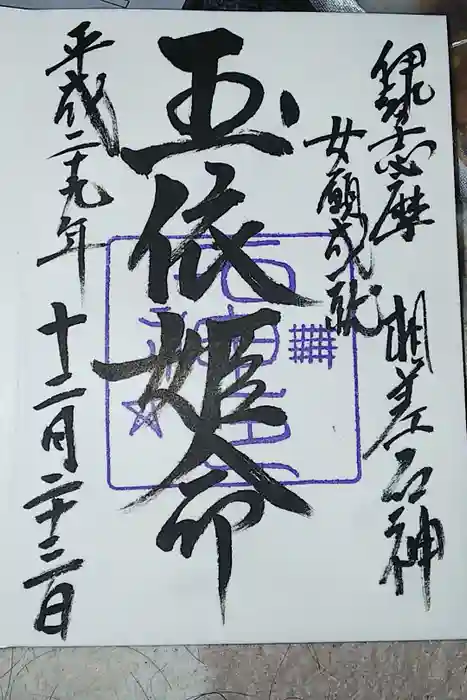 伊勢志摩 相差石神
女願成就
玉依姫命
平成二十九年 十二月二十三日